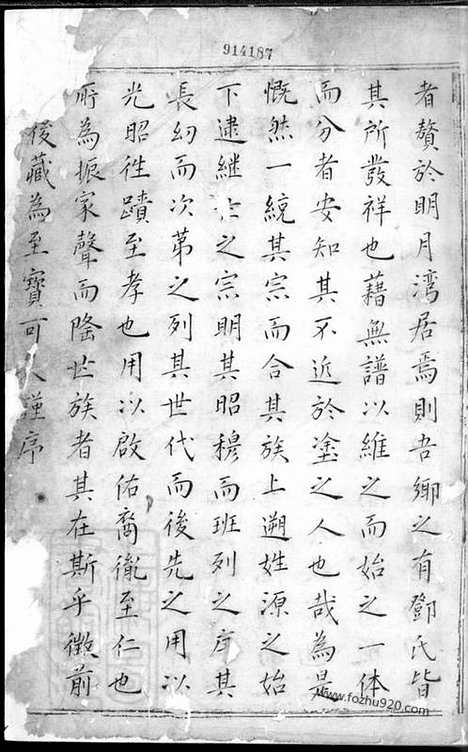 914187
者贅於明月湾居焉則吾鄉之有鄧氏皆
其所發祥也藉無譜以維之而始之一体
而分者安知其不近於塗之人也哉為是
慨然一統其宗而合其族上遡姓源之始
下逮継之宗明其昭穆而班列之序其
長幼而次第之列其世代而後先之用以
光昭徃蹟至孝也用以啟佑裔胤至仁也
所為振家聲而隆世族者其在斯乎徵前
後藏為至寳可謹序
www.fozhu920.com